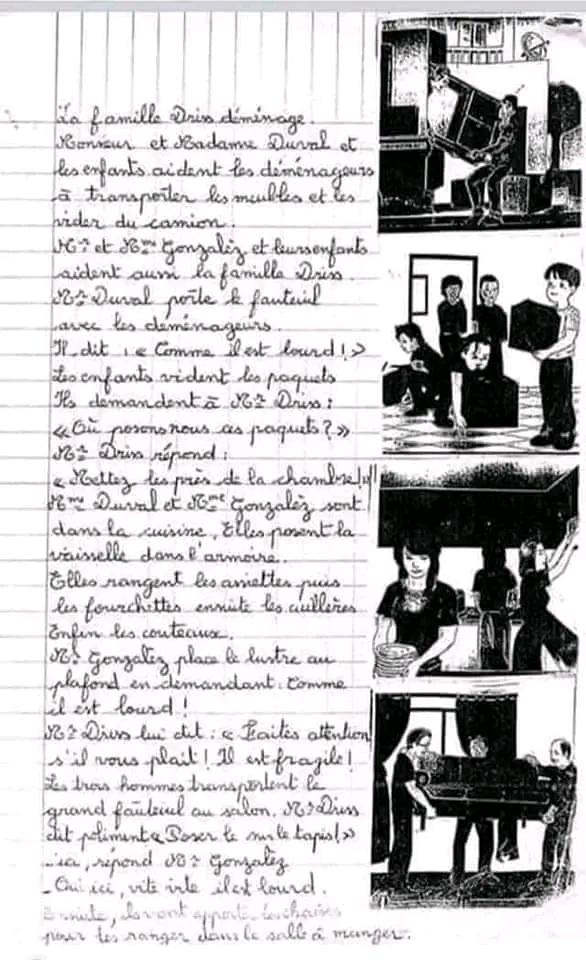 La famille Driss déménage.
Monsieur et Madame Duval et
les enfants aident les déménageurs
à transporter les meubles et les
vider du camion.
Mr et Mme Gonzalèz et leurs enfants
aident aussi la famille Driss.
Mr Duval porte le fauteuil
avec les déménageurs.
Il dit : « Comme il est lourd ! »
Les enfants vident les paquets
Ils demandent à Mr Driss :
« Où posons nous ces paquets ? »
Mr Driss répond :
« Mettez les près de la chambre ! »
Mme Duval et Mme Gonzalèz sont
dans la cuisine, Elles posent la
vaisselle dans l'armoire.
Elles rangent les assiettes puis
les fourchettes ensuite les cuillères
Enfin les couteaux.
Mr Gonzalèz place le lustre au
plafond en demandant : Comme
il est lourd !
Mr Driss lui dit : « Faites attention
s'il vous plait ! Il est fragile !
Les trois hommes transportent le
grand fauteuil au salon. Mr Driss
dit poliment « Poser le sur le tapis ! »
_ ici, répond Mr Gonzalèz
_ Oui ici, vite vite il est lourd.
Ensuite, ils vont apporte les chaises
pour les ranger dans le salle à manger.